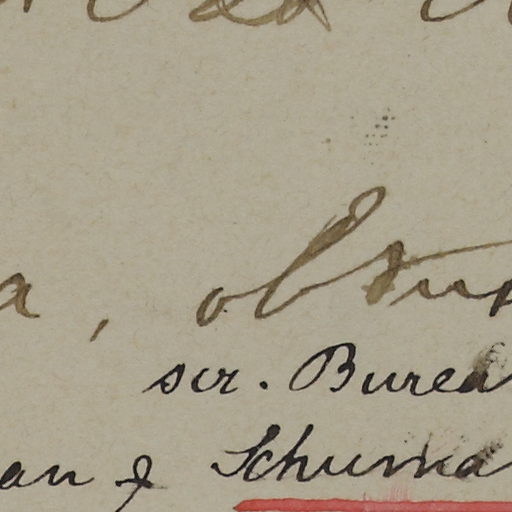 a, obtus
scr. Burea
an & Schuma